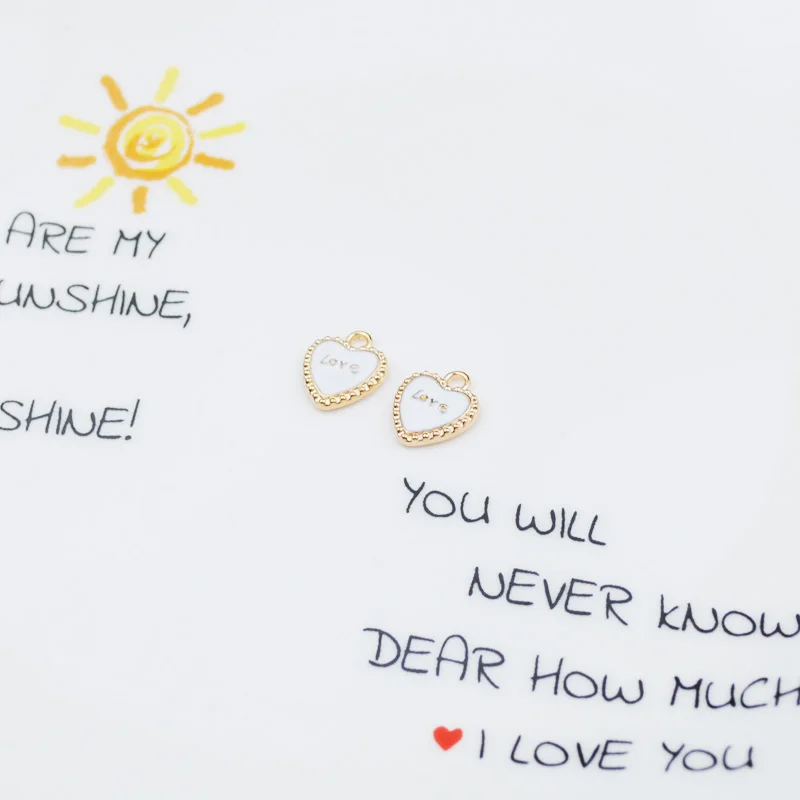 ARE MY
UNSHINE,
SHINE!
Love
Love
YOU WILL
NEVER KNOW
DEAR HOW MUCH
I LOVE YOU